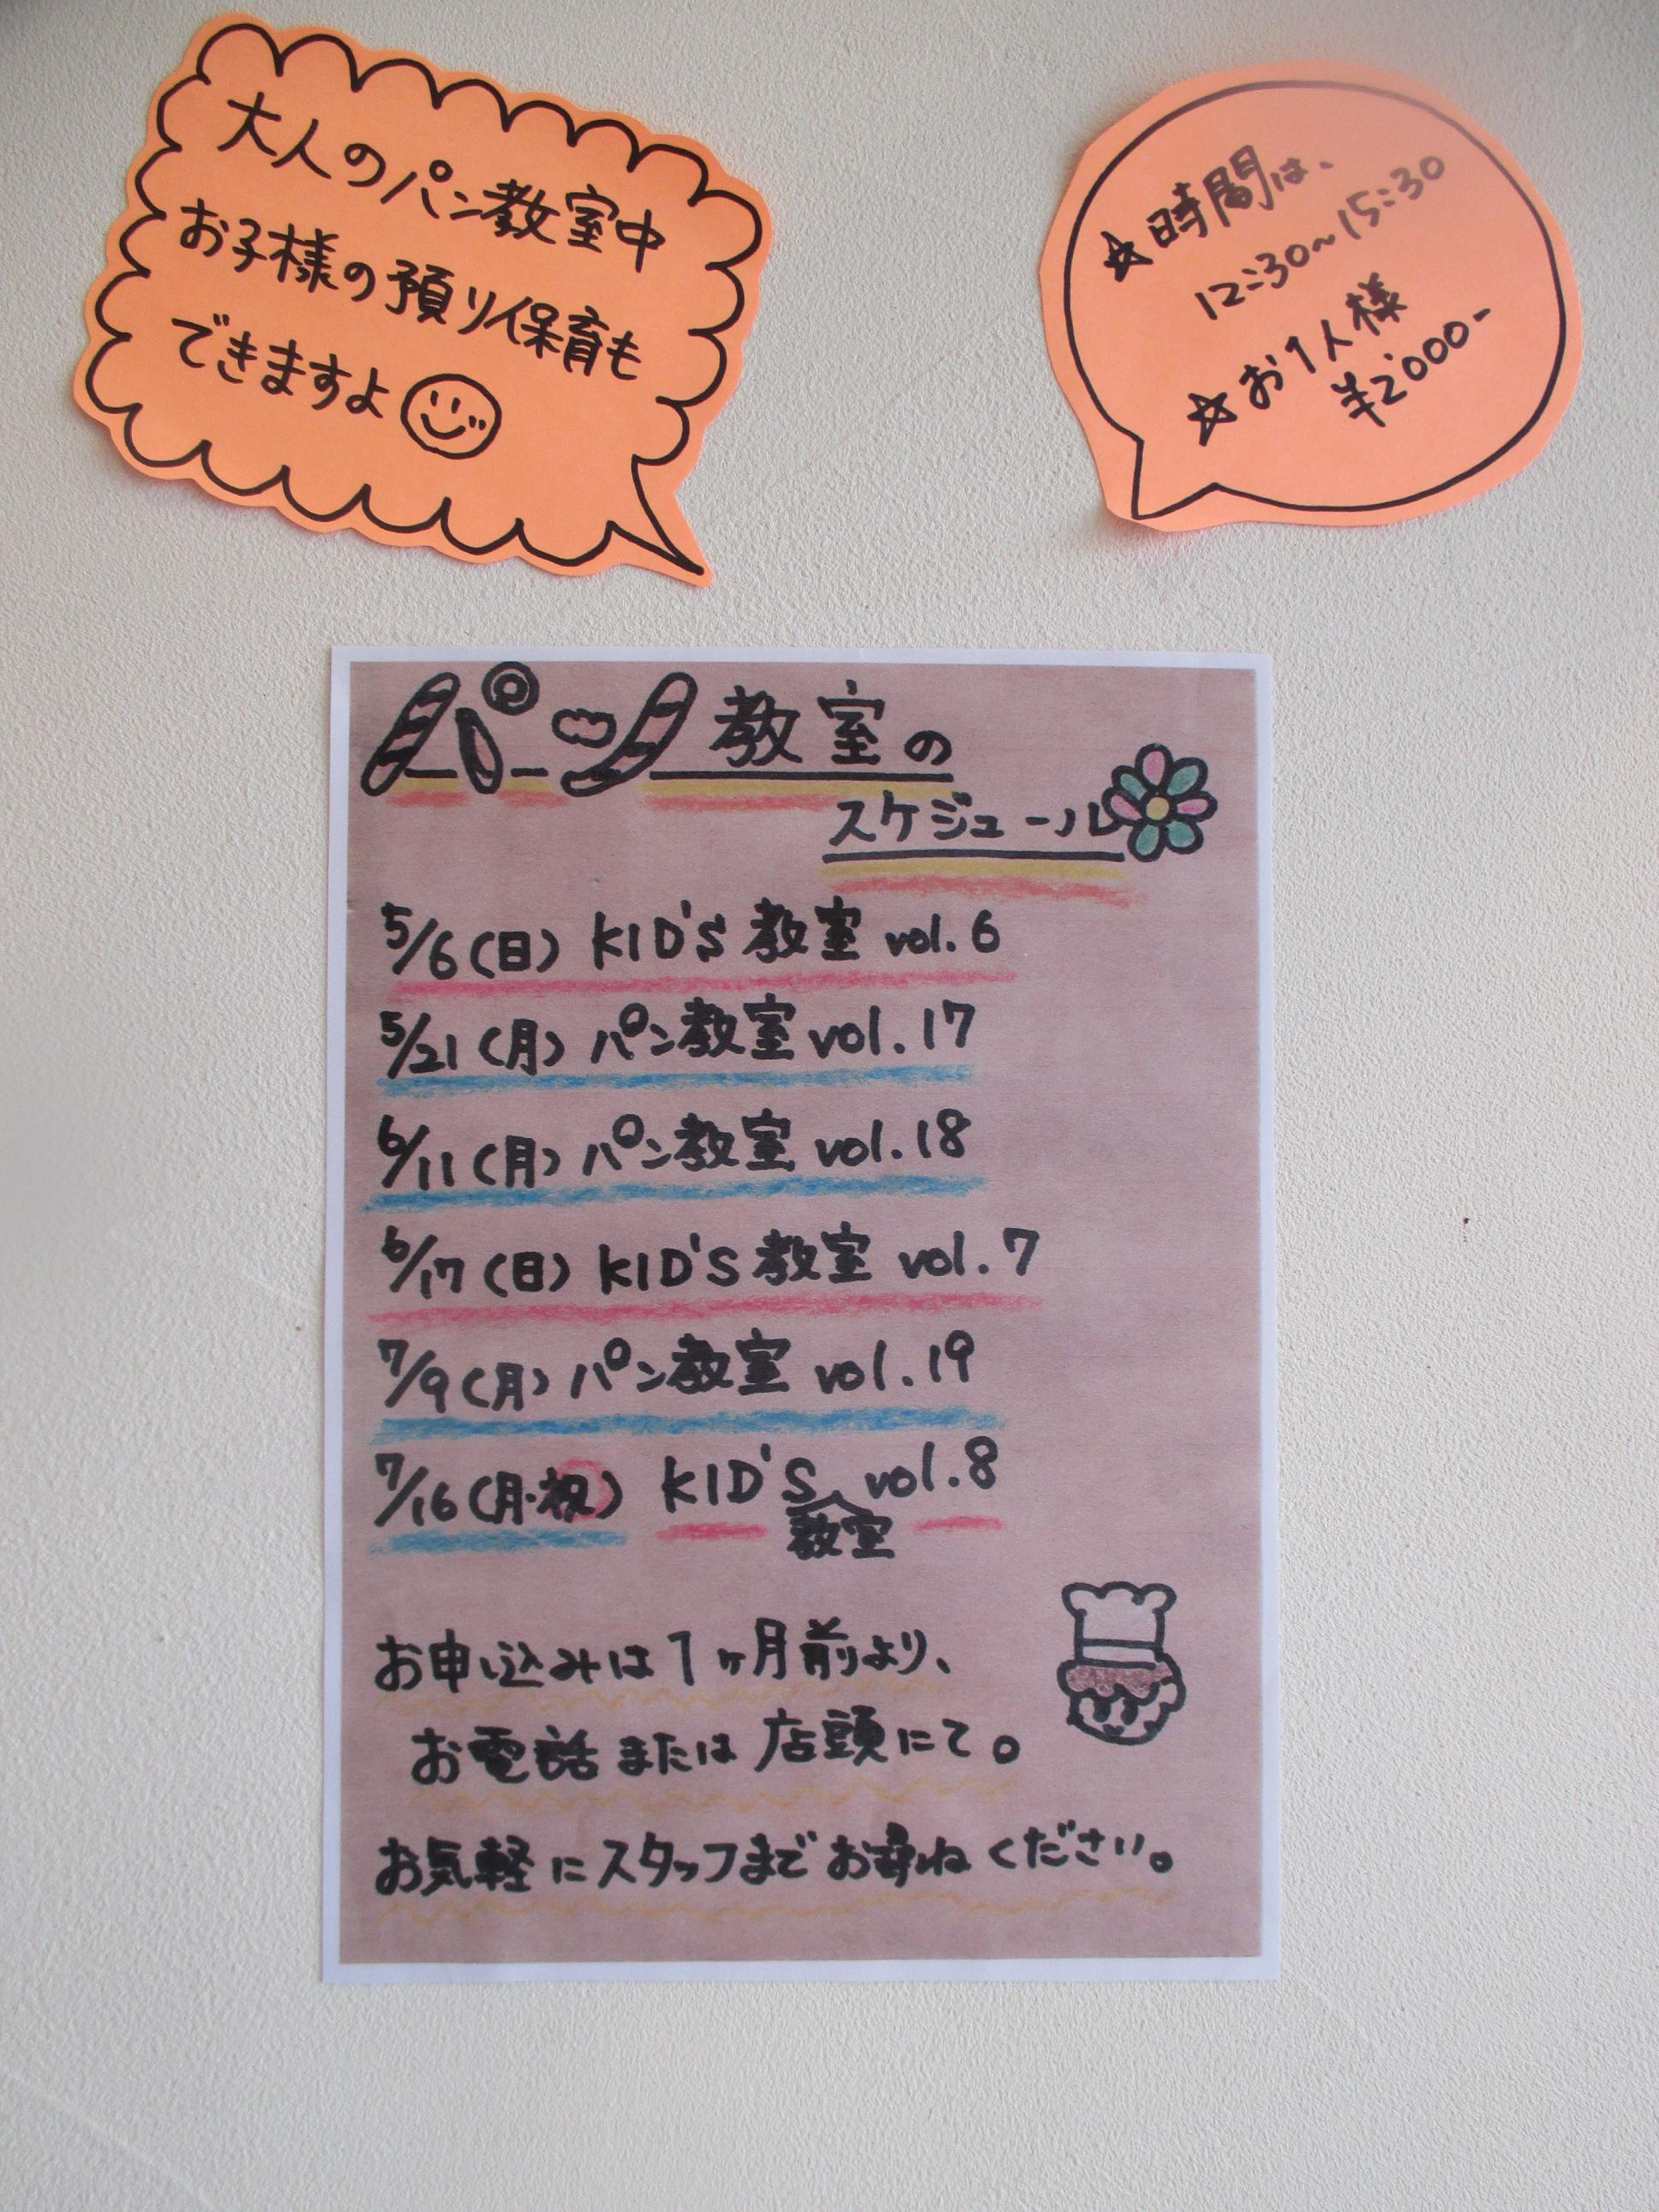 大人のパン教室中
お子様の預り保育も
できますよ
☆時間は、
12:30~15:30
☆お1人様
¥2'000-
パン教室の
スケジュール
5/6(日) KID'S 教室 vol.6
5/21(月) パン教室 vol.17
6/11(月) パン教室 vol.18
6/17(日) KID'S 教室 vol.7
7/9(月) パン教室 vol.19
7/16(月・祝) KID'S 教室 vol.8
お申し込みは1ヶ月前より、
お電話または店頭にて。
お気軽にスタッフまでお尋ねください。